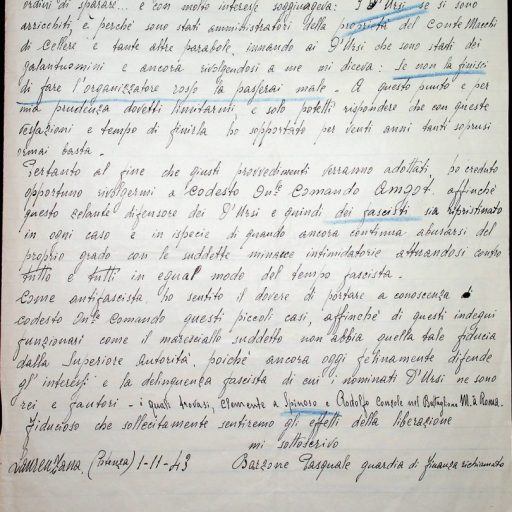 ordini di sparare... e con molto interesse soggiungeva: I D'Ursi se si sono
arricchiti, è perchè sono stati amministratori della proprietà del Conte Macchi
di Cellere e tante altre parabole, innando ai D'Ursi che sono stati dei
galantuomini e ancora rivolgendosi a me mi diceva: se non la finisci
di fare l'organizzatore rosso la passerai male. A questo punto e per
mia prudenza dovetti limitarmi, e solo potetti rispondere che con queste
vessazioni è tempo di finirla ho sopportato per venti anni tanti soprusi
ormai basta.
Pertanto al fine che giusti provvedimenti verranno adottati, ho creduto
opportuno rivolgermi a codesto On/le Comando Amgot, affinchè
questo zelante difensore dei D'Ursi e quindi dei fascisti sia ripristinato
in ogni caso e in ispecie di quando ancora continua abusarsi del
proprio grado con le suddette minacce intimidatorie attuandosi contro
tutto e tutti in egual modo del tempo fascista.
Come antifascista, ho sentito il dovere di portare a conoscenza
codesto On/le Comando questi piccoli casi, affinchè di questi indegni
funzionari come il maresciallo suddetto non abbia quella tale fiducia
dalla Superiore autorità, poichè ancora oggi felinamente difende
gl' interessi e la delinquenza fascista di cui i nominati D'Ursi ne sono
rei e fautori - i quali trovansi, Clemente a Spinoso e Rodolfo Console nel Battaglione M. a Roma.
Fiducioso che sollecitamente sentiremo gli effetti della liberazione
mi sottoscrivo
Laurenzana, (Potenza) 1-11-43 Barzone Pasquale guardia di finanza richiamato